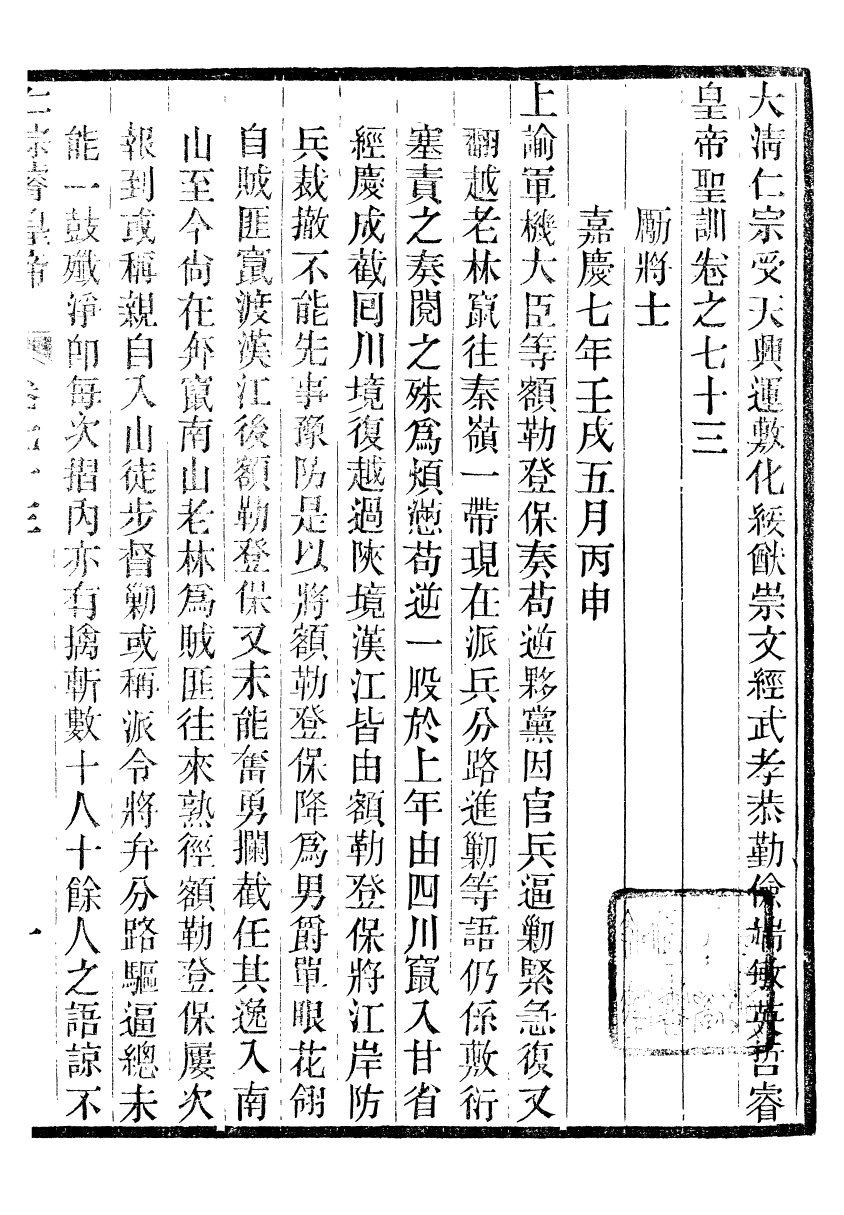 大淸仁宗受天興運敷化綏猷崇文經武孝恭勤儉端敏英哲睿
皇帝聖訓卷之七十三
勵將士
嘉慶七年壬戌五月丙申
上諭軍機大臣等額勒登保奏苟逆夥黨因官兵逼勦緊急復又
翻越老林竄往秦嶺一帶現在派兵分路進勦等語仍係敷衍
塞責之奏閱之殊爲煩懣苟逆一股於上年由四川竄入甘省
經慶成截回川境復越過陝境漢江皆由額勒登保將江岸防
兵裁撤不能先事豫防是以將額勒登保降爲男爵單眼花翎
自賊匪竄渡漢江後額勒登保又未能奮勇攔截任其逸入南
山至今尙在奔竄南山老林爲賊匪往來熟徑額勒登保屢次
報到或稱親自入山徒步督勦或稱派令將弁分路驅逼總未
能一鼓殲淨卽每次摺內亦有擒斬數十人十餘人之語諒不
仁宗睿皇帝 卷七十三 一